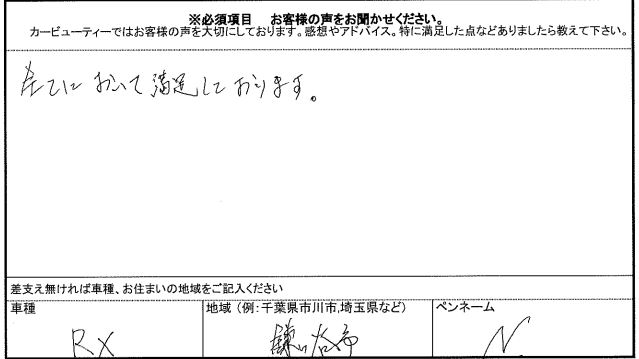 ※必須項目　お客様の声をお聞かせください。
カービューティーではお客様の声を大切にしております。感想やアドバイス。特に満足した点などありましたら教えて下さい。
全てにおいて満足しております。
差支え無ければ車種、お住まいの地域をご記入ください
車種　地域（例:千葉県市川市,埼玉県など）　ペンネーム
RX　鎌ヶ谷市　N.